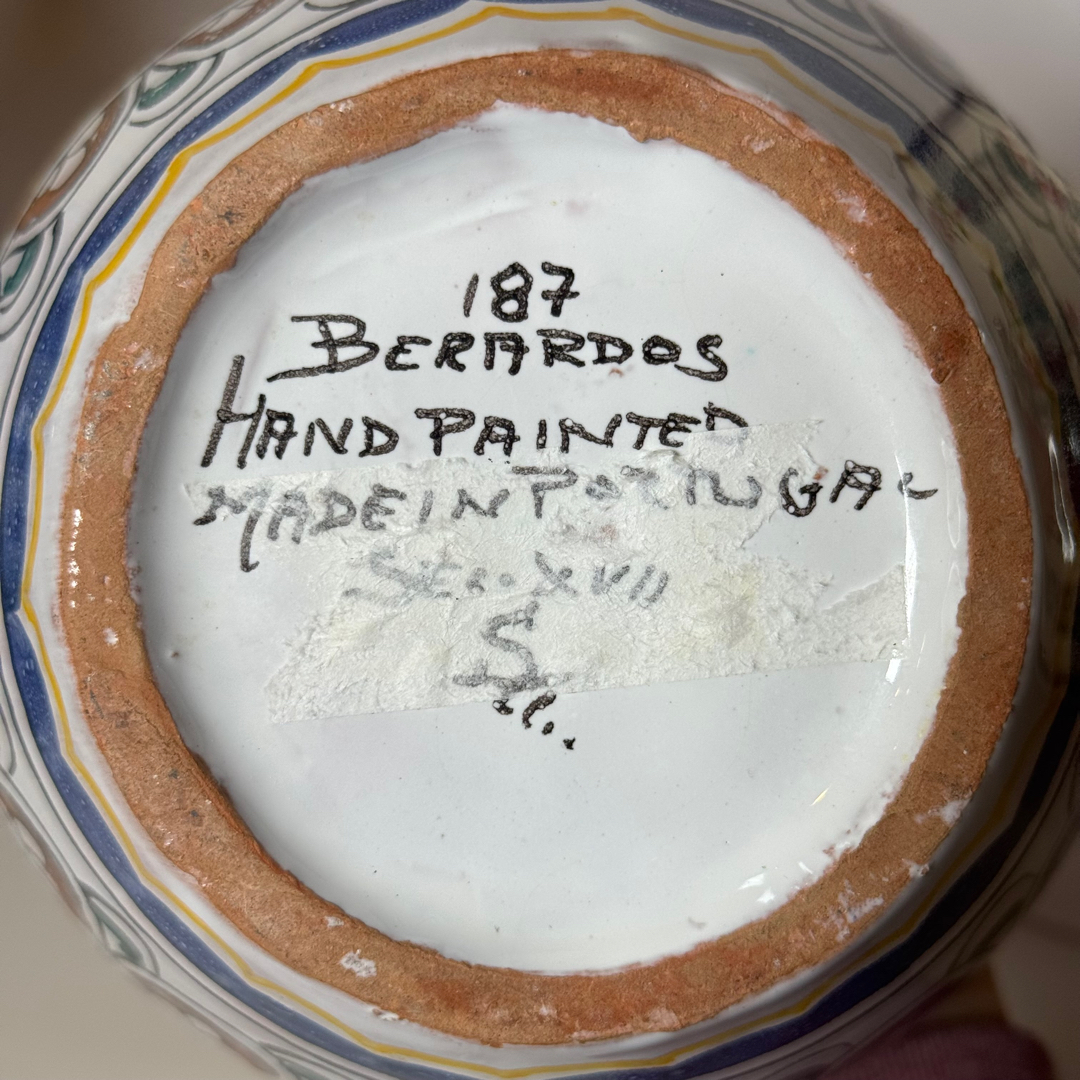 187
BERARDOS
HAND PAINTED
MADE IN PORTUGAL
XVII
S